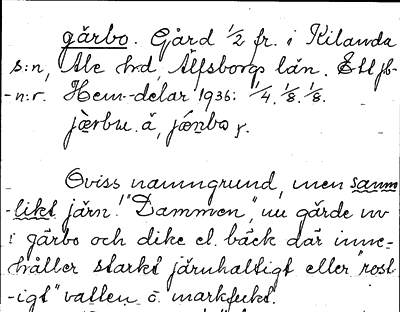 gärbo. Gård 1/2 fr. i Kilanda
s:n, Ale hrd, Älfsborgs län. Ett jb-
-n:r. Hem.-delar 1936: 1/4. 1/8. 1/8.
Oviss namngrund, men sann-
-likt järn! "Dammen", nu gärde nv
i gärbo och dike el. bäck där inne-
håller starkt järnhaltigt eller "rost
-igt" vatten o. markfukt.